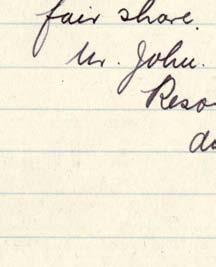 fair share.
Mr. John.
Reso